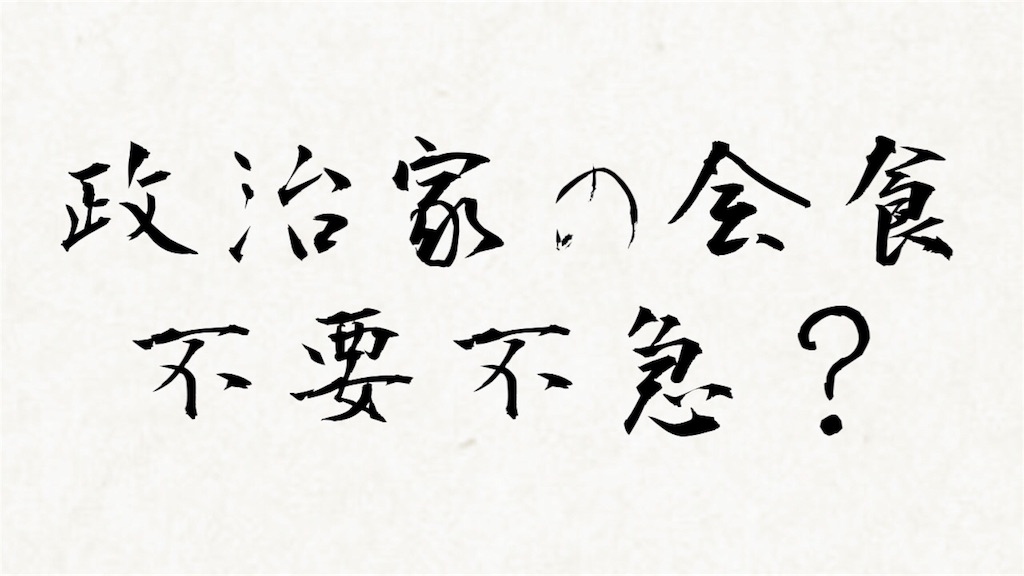 政治家の会食
不要不急？